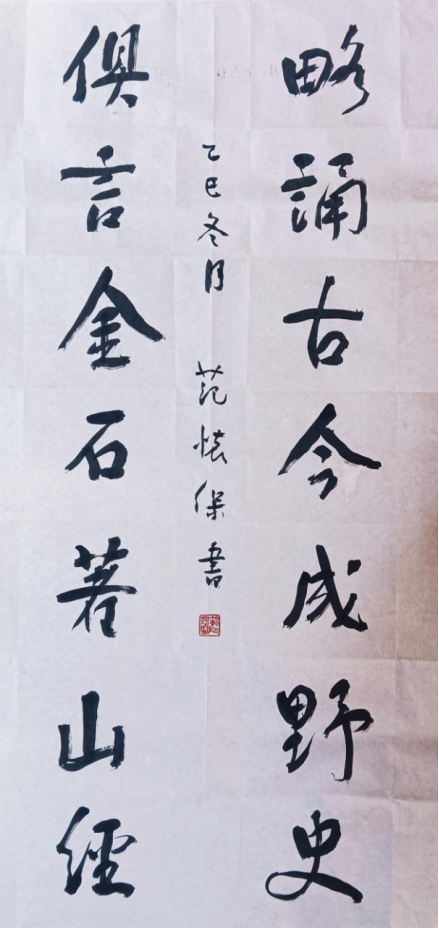 略誦古今成野史
俱言金石著山經
乙巳冬月 范懷保書